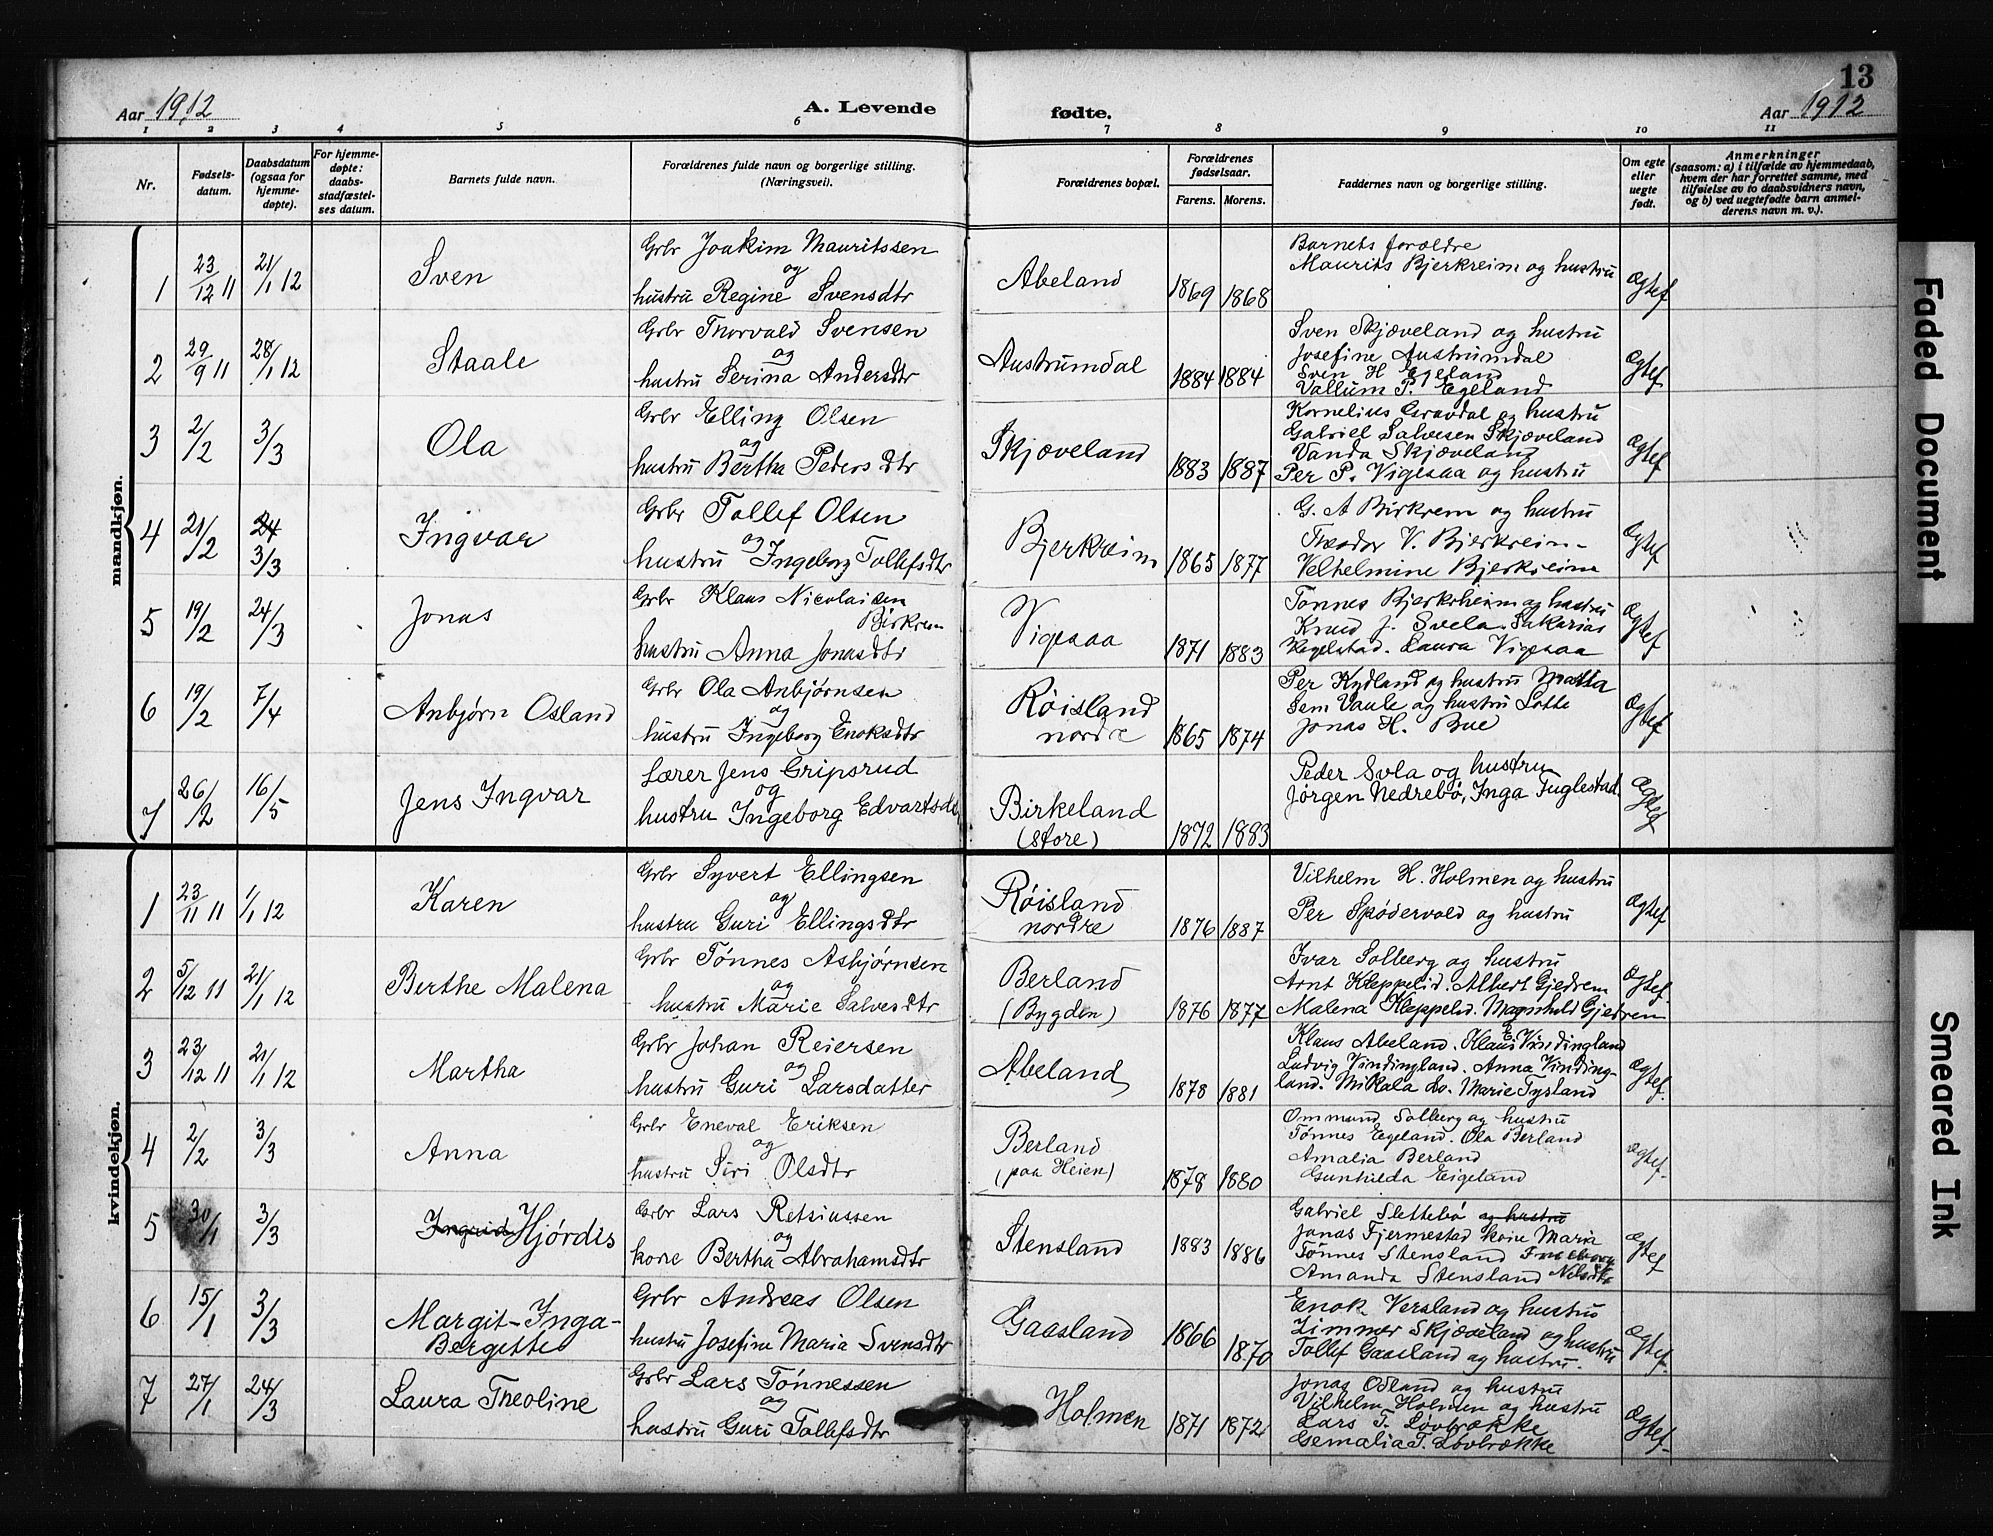 13
Aar 1912
A. Levende fødte.
Aar 1912
1 2 3 4 5 6 7 8 9 10 11
Nr.
Fødsels-
datum.
Daabsdatum
(ogsaa for
hjemme-
døpte).
For hjemme-
døpte:
daabs-
stadfæstel-
ses datum.
Barnets fulde navn.
Forældrenes fulde navn og borgerlige stilling.
(Næringsvei).
Forældrenes bopæl.
Forældrenes
fødselsaar.
Farens. Morens.
Faddernes navn og borgerlige stilling.
Om egte
eller
uegte
født.
Anmerkninger
(saasom: a) i tilfælde av hjemmedaab,
hvem der har forrettet samme, med
tilføielse av to daabsvidners navn,
og b) ved uegtefødte barn anmel-
derens navn m. v.).
mandkjøn.
1 23/12 11 21/1 12 Sven
Grbr Joakim Mauritssen
og
hustru Regine Svensdtr
Abeland 1869 1868
Barnets forældre
Maurits Bjerkreim og hustru
Ægtef
2 29/9 11 28/1 12 Staale
Grbr Thorvald Svensen
og
hustru Serina Andersdtr
Austrumdal 1884 1884
Sven Skjæveland og hustru
Josefine Austrumdal
Sven H Egeland
Vallum P. Egeland
Ægtef
3 2/2 3/3 Ola
Grbr Elling Olsen
og
hustru Bertha Peders dtr
Skjæveland 1883 1887
Kornelius Gravdal og hustru
Gabriel Salvesen Skjæveland
Vanda Skjæveland
Per P. Vigesaa og hustru
Ægtef
4 21/2 24 3/3 Ingvar
Grbr Tollef Olsen
og
hustru Ingeborg Tollefsdtr
Bjerkreim 1865 1877
G. A Birkrem og hustru
Theodor V. Bjerkreim
Velhelmine Bjerkreim
Ægtef
5 19/2 24/3 Jonas
Grbr Klaus Nicolaisen
Birkrem
hustru Anna Jonasdtr
Vigesaa 1871 1883
Tønnes Bjerkrheim og hustru
Knud J. Svela. Sakarias
Hegelstad. Laura Vigesaa
Ægtef
6 19/2 7/4 Anbjørn Osland
Grbr Ola Anbjørnsen
og
hustru Ingeborg Enoksdtr
Røisland
nordre 1865 1874
Per Kydland og hustru Matta
Sem Vaule og hustru Lotte
Jonas H. Bue
Ægtef
7 26/2 16/5 Jens Ingvar
Lærer Jens Gripsrud
og
hustru Ingeborg Edvartsdtr
Birkeland
(store) 1872 1883
Peder Svla og hustru
Jørgen Nedrebø, Inga Fuglestad
Ægtef
kvindekjøn.
1 23/11 11 1/1 12 Karen
Grbr Syvert Ellingsen
og
hustru Guri Ellingsdtr
Røisland
nordre 1876 1887
Vilhelm H. Holmen og hustru
Per Spødervold og hustru
Ægtef
2 5/12 11 21/1 12 Berthe Malena
Grbr Tønnes Asbjørnsen
og
hustru Marie Salvesdtr
Berland
(Bygden) 1876 1877
Ivar Solberg og hustru
Arnt Kleppelid. Albert Gjedrem
Malena Kleppelid. Magnhild Gjedrem
Ægtef.
3 23/12 11 21/1 12 Martha
Grbr Johan Reiersen
og
hustru Guri Larsdatter
Abeland 1878 1881
Klaus Abeland. Klaus E Vindingland
Ludvig Vindingland. Anna Vinding-
land. Mikala do. Marie Tysland
Ægtef.
4 2/2 3/3 Anna
Grbr Eneval Eriksen
og
hustru Siri Olsdtr
Berland
(paa Heien) 1878 1880
Ommund Solberg og hustru
Tønnes Egeland. Ola Berland
Amalia Berland
Gunhilda Eigeland
Ægtef.
5 30/1 3/3 Ingrid Hjørdis
Grbr Lars Retsiussen
og
kone Bertha Abrahamsdtr
Stensland 1883 1886
Gabriel Slettebø og hustru
Jonas Fjermestad kone Maria
Tønnes Stensland
Amanda Stensland Nilsdtr
Ægtef
6 15/1 3/3 Margit-Inga-
Bergette
Grbr Andreas Olsen
hustru Josefine Maria Svensdtr
Gaasland 1866 1870
Enok Versland og hustru
Zimmer Skjæveland og hustru
Tollef Gaasland og hustru.
Ægtef.
7 27/1 24/3 Laura Theoline
Grbr Lars Tønnessen
og
hustru Guri Tollefsdtr
Holmen 1871 1872
Jonas Odland og hustru
Vilhelm Holmen og hustru
Lars T. Løvbrække
Gemalia T. Løvbrække
Ægtef.
Faded Document
Smeared Ink